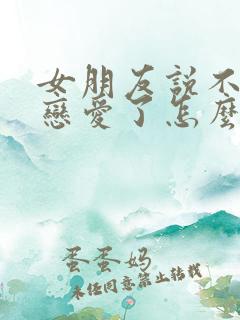 女朋友說不
戀愛了怎麼
蛋蛋媽
未任同意禁止转载